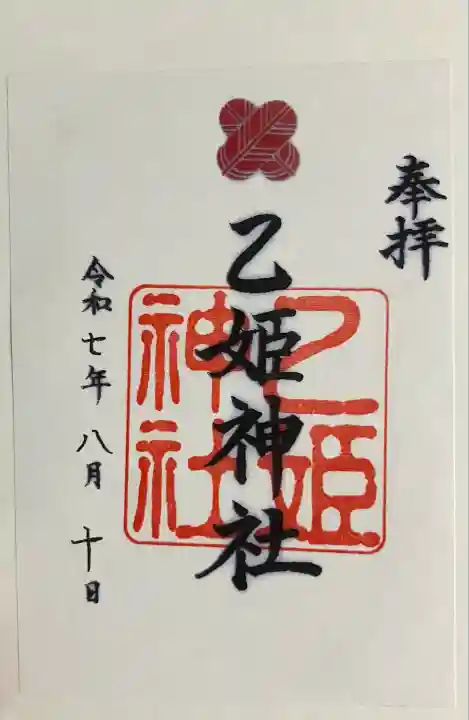 奉拝
乙姫神社
乙姫
神社
令和七年 八月 十日